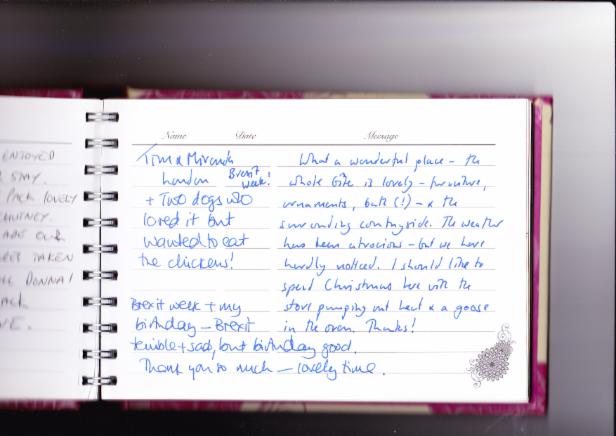 ENJOYED
STAY.
PACK LOVELY
CHUTNEY.
TAKEN
DONNA!
Name Date Message
Tim & Miranda
London Brexit
week!
+ Two dogs who
loved it but
wanted to eat
the chickens!
Brexit week + my
birthday – Brexit
terrible + sad, but birthday good.
Thank you so much – lovely time.
What a wonderful place – the
whole is lovely – furniture,
ornaments, bath (!) – & the
surrounding countryside. The weather
has been atrocious – but we have
hardly noticed. I should like to
spend Christmas here with the
stove pumping out heat & a goose
in the oven. Thanks!